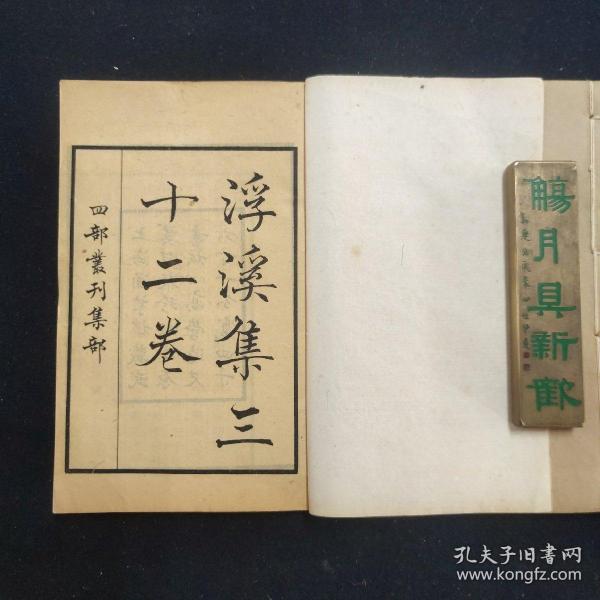 浮溪集三
十二卷
四部叢刊集部
觴月具新歡
孔夫子旧书网
www.kongfz.com